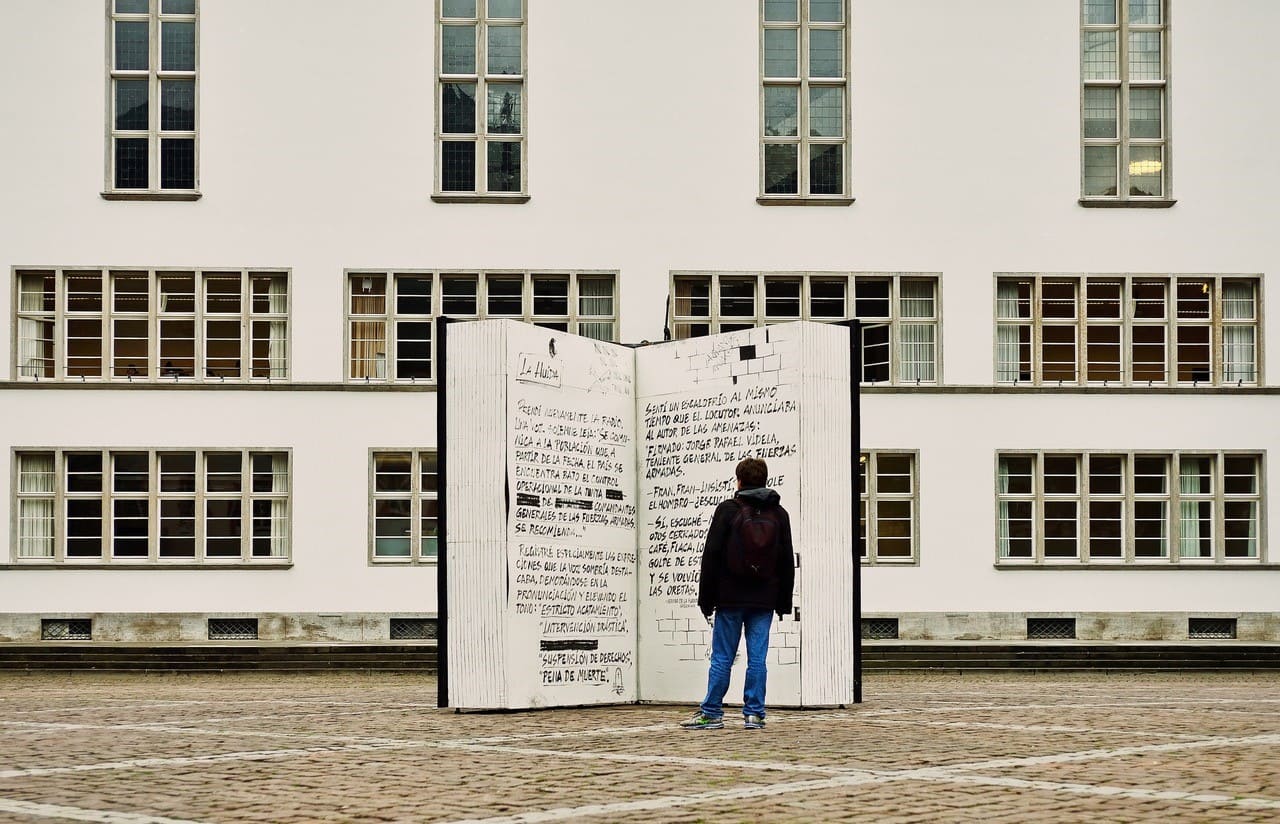 LA HUIDA
PRENDÍ NUEVAMENTE LA RADIO.
UNA VOZ SOLEMNE LEÍA: "SE COMU-
NICA A LA POBLACIÓN QUE, A
PARTIR DE LA FECHA, EL PAÍS SE
ENCUENTRA BAJO EL CONTROL
OPERACIONAL DE LA JUNTA
DE COMANDANTES
GENERALES DE LAS FUERZAS ARMADAS.
SE RECOMIENDA..."
REGISTRÉ ESPECIALMENTE LAS EXPRE-
CIONES QUE LA VOZ SOMBRÍA DESTA-
CABA, DEMORÁNDOSE EN LA
PRONUNCIACIÓN Y ELEVANDO EL
TONO: "ESTRICTO ACATAMIENTO",
"INTERVENCIÓN DRÁSTICA",
"SUSPENSIÓN DE DERECHOS",
"PENA DE MUERTE".
SENTÍ UN ESCALOFRÍO AL MISMO
TIEMPO QUE EL LOCUTOR ANUNCIARA
AL AUTOR DE LAS AMENAZAS:
"FIRMADO: JORGE RAFAEL VIDELA,
TENIENTE GENERAL DE LAS FUERZAS
ARMADAS.
-FRAN, FRAN-INSISTI
EL HOMBRE-¿ESCUC
-SÍ, ESCUCHÉ-
OJOS CERRADO
CAFÉ, FLACA, LO
GOLPE DE EST
Y SE VOLVI
LAS OREJAS.